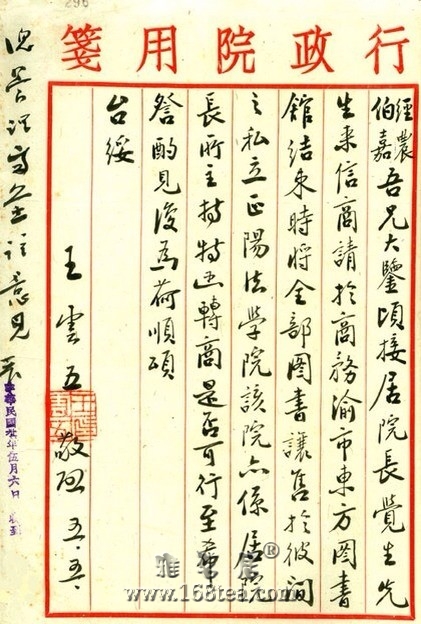 行政院用箋
經農
伯嘉
吾兄大鑒頃接居院長覺生先
生来信商請於商務渝市東方图書
館結束時將全部图書讓售於彼間
之私立正陽法學院該院亦係居院
長所主持特函轉商是否可行至希
詧酌見復為荷順頌
台綏
王雲五敬啟 五.五.
意見
民國
年五月六日 收到
®
www.168tea.com